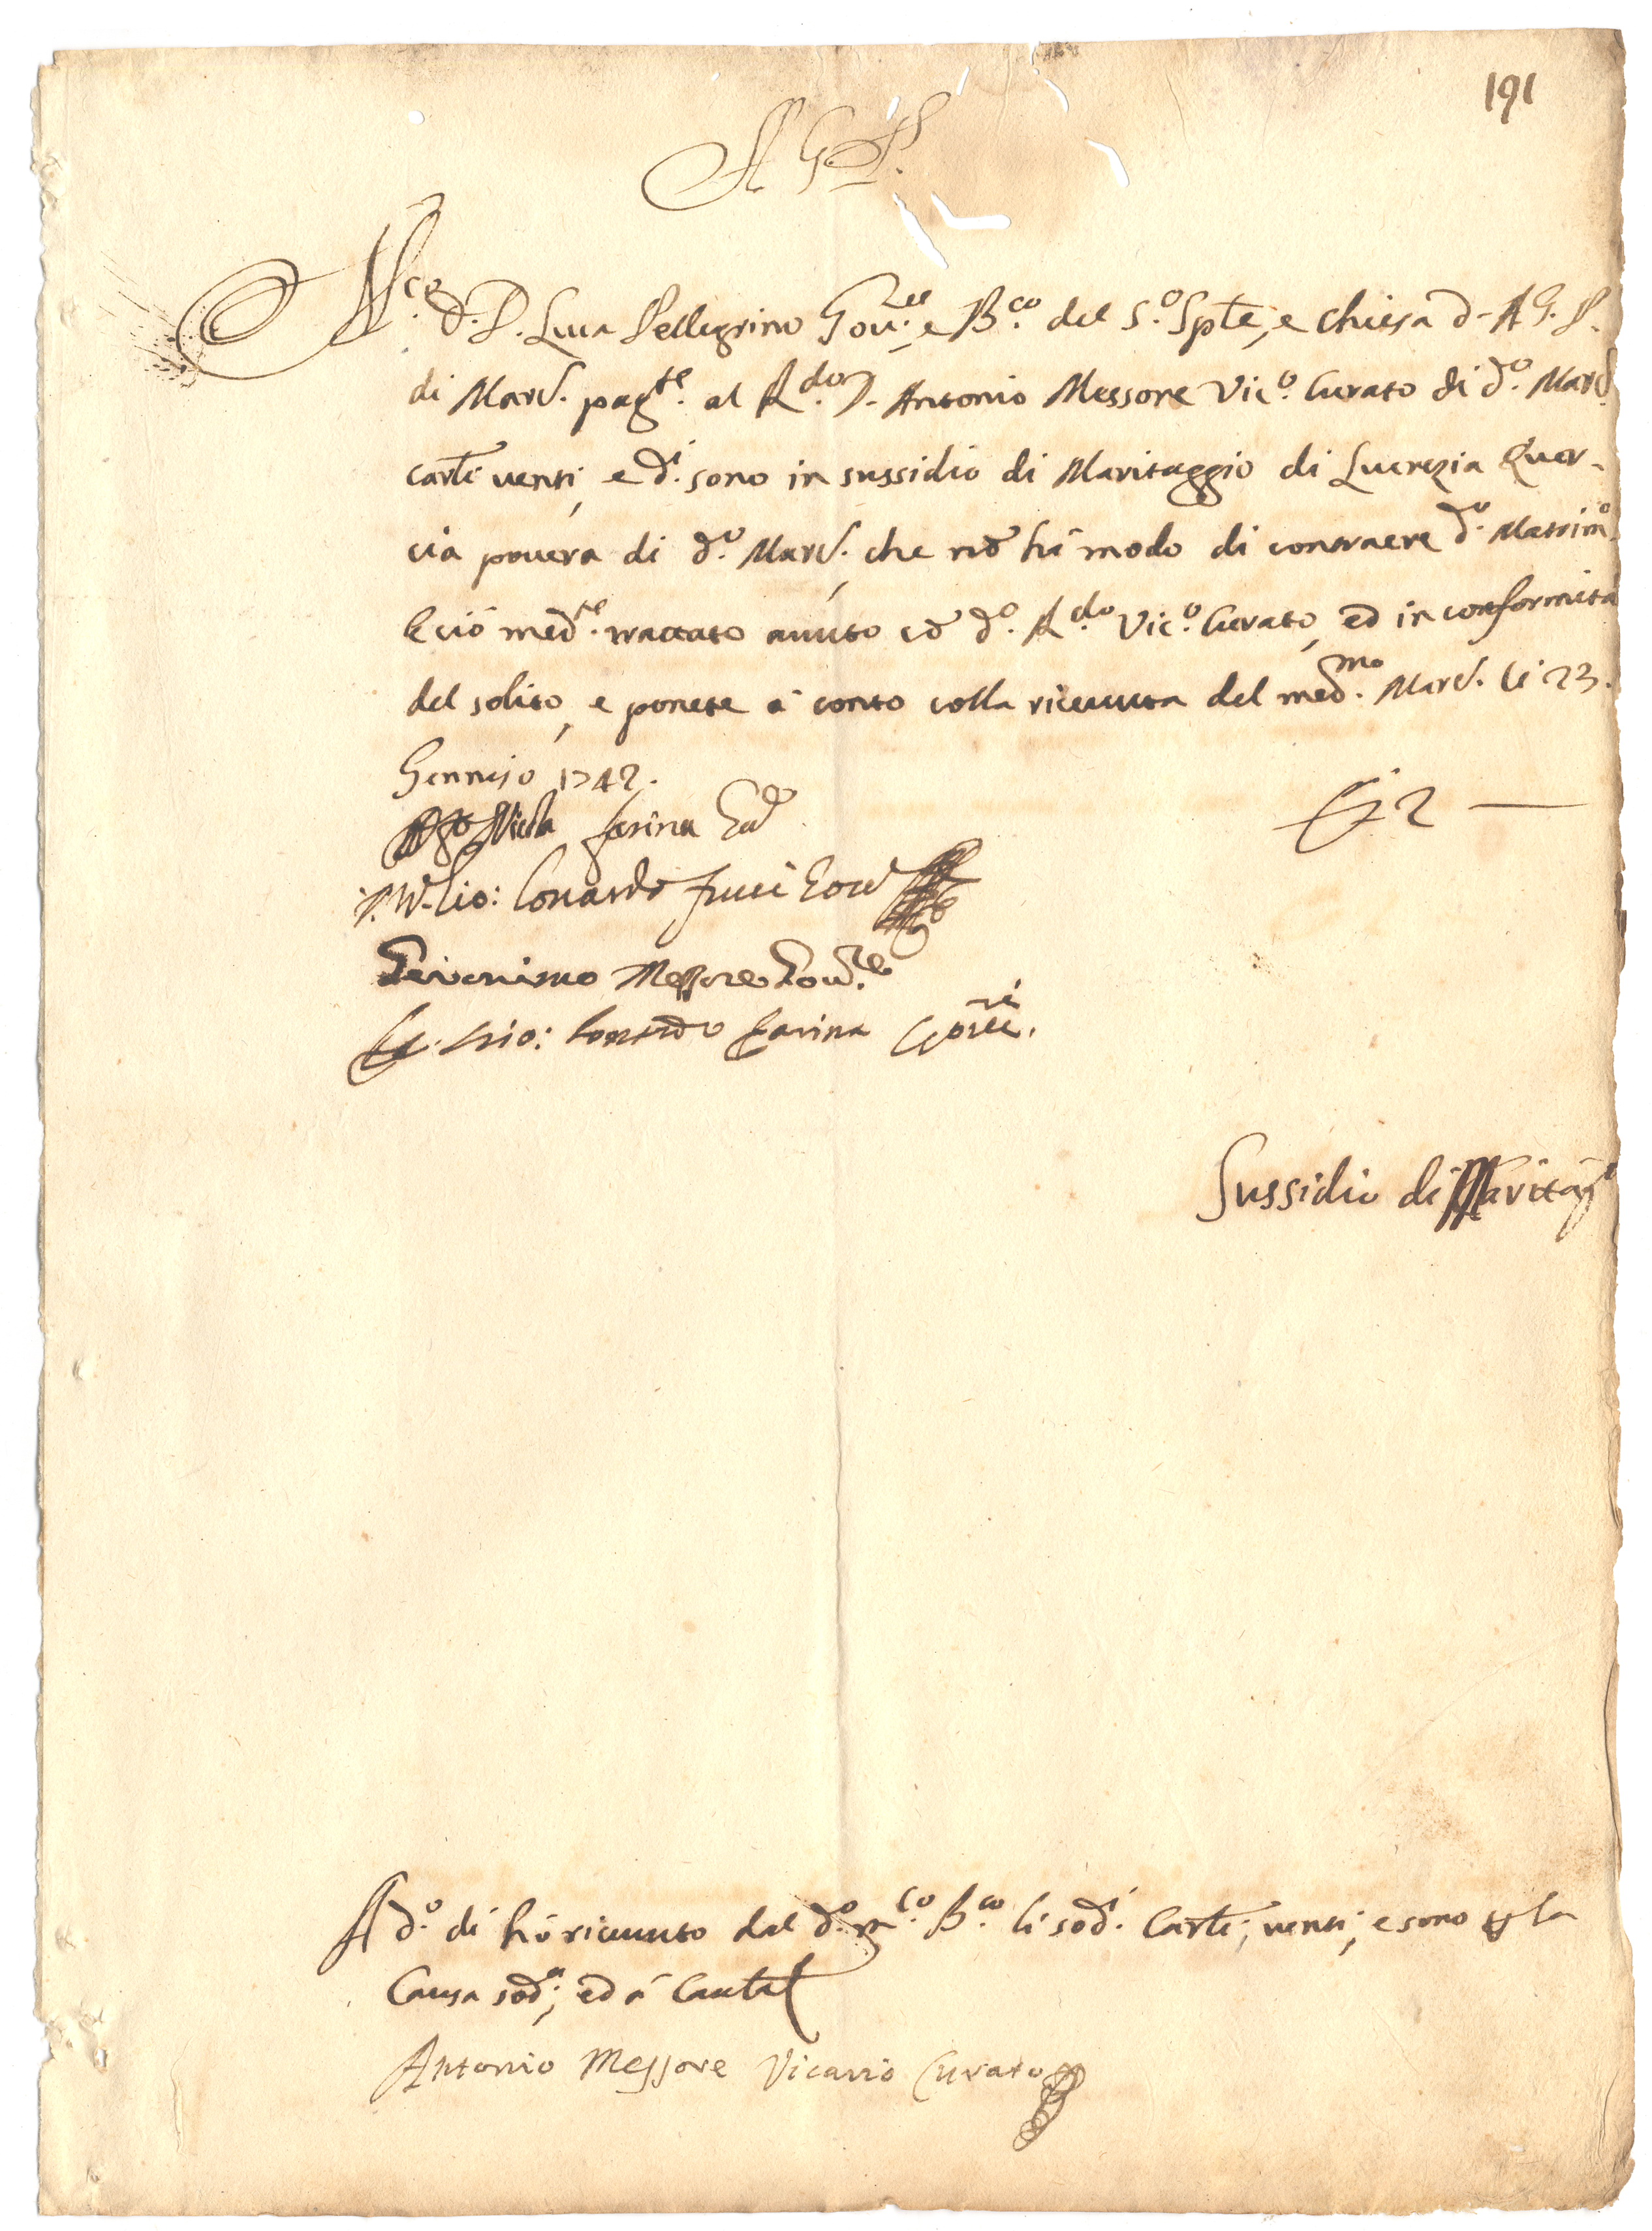 191
A G P.
M.co D. P. Luca Pellegrino Gov.re e B.co del S.o Spte, e Chiesa d- A G. P.
di Marc. pag.te al R.do D. Antonio Messore Vic.o Curato di d.o Marc.
carli venti, e d.i sono in sussidio di Maritaggio di Lucrezia Quer-
cia povera di d.o Marc. che nō há modo di contraere d.o Matrim.o
e ció med.te trattato avuto cō d.o R.do Vic.o Curato, ed in conformitá
del solito, e ponete á conto colla ricevuta del med.mo Marc. li 23.
Gennajo 1742.
2 —
Nicola farina
Lonardo fucci
Geronimo Messore Gov.re
Lonardo farina
Sussidio di Maritag.o
A d.o dí hó ricevuto dal d.o m.co B.co li sod.i Carli venti, e sono per la
Causa sod.a, ed á Cautal
Antonio Messore Vicario Curato